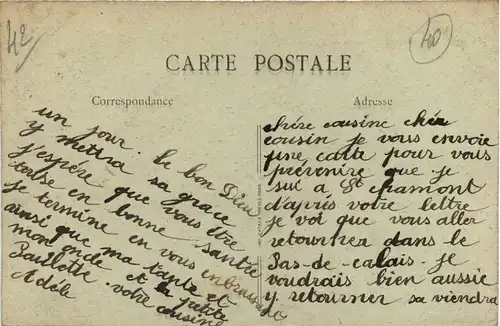 42
40
CARTE POSTALE
Correspondance
Adresse
chére cousine chér
cousin je vous envoie
une carte pour vous
prévenire que je
sui a St chamont
d'aprés votre lettre
je voi que vous aller
retourner dans le
Pas-de-calais. je
voudrais bien aussie
y retourner sa viendra
un jour. le bon Dieu
y mettra sa grace
j'espére que vous étre
touse en bonne santée
je termine en vous enbrassant
ainsi que ma tante et
mon oncle et la petite
Paulette. votre cousine
Adéle